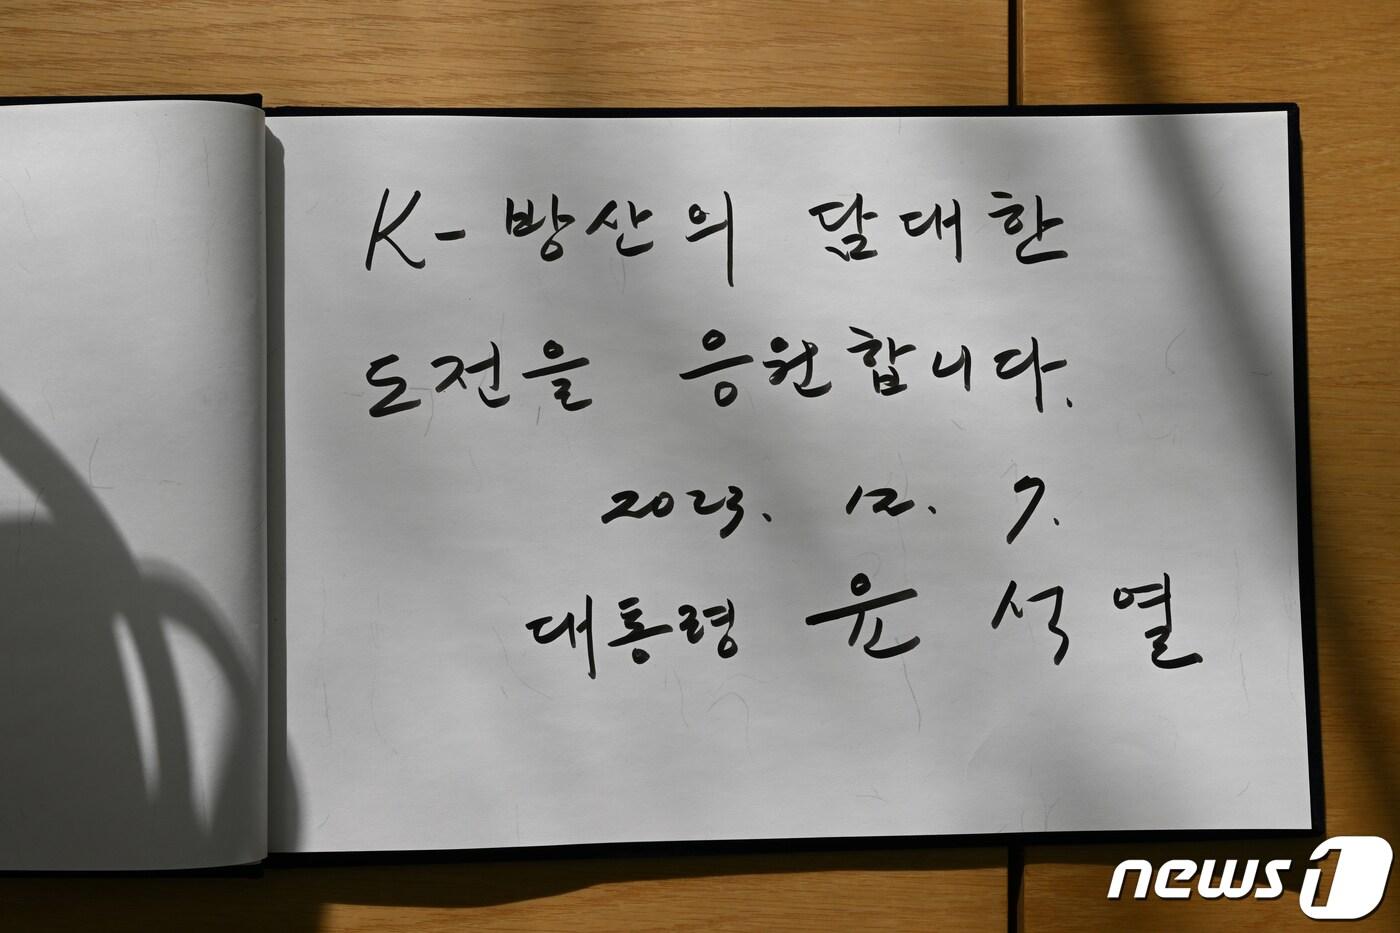 K-방산의 담대한
도전을 응원합니다.
2023. 12. 7.
대통령 윤석열
news1